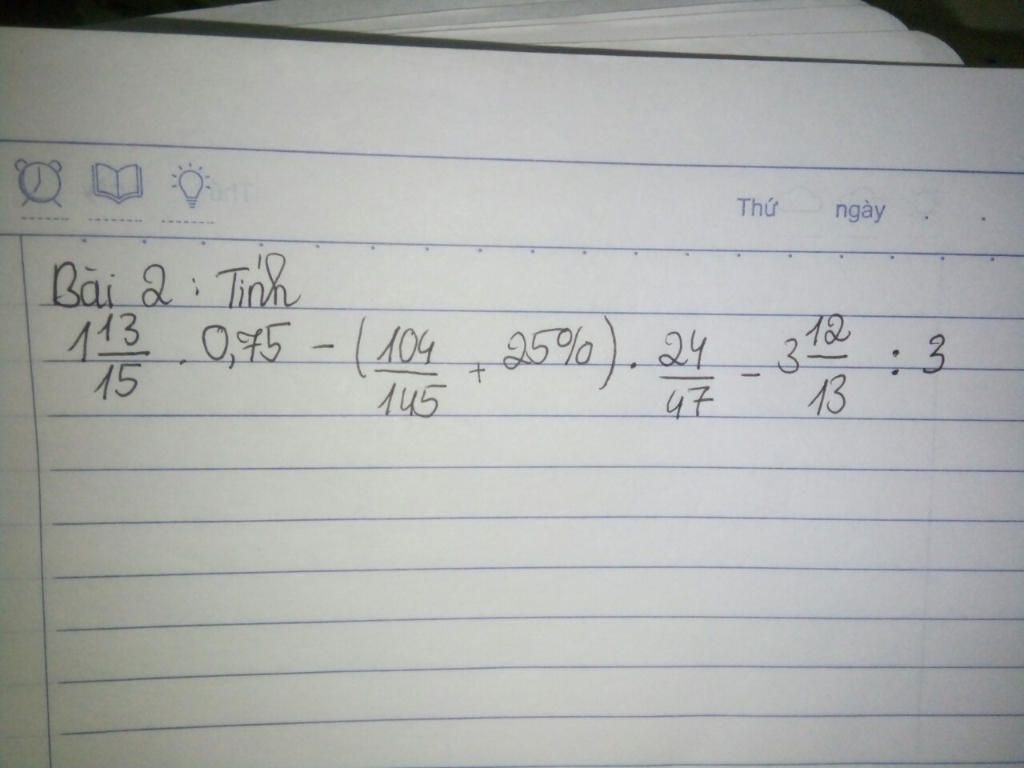 Thứ ngày
Bài 2 : Tính
1 13/15 . 0,75 - (104/145 + 25%) . 24/47 - 3 12/13 : 3